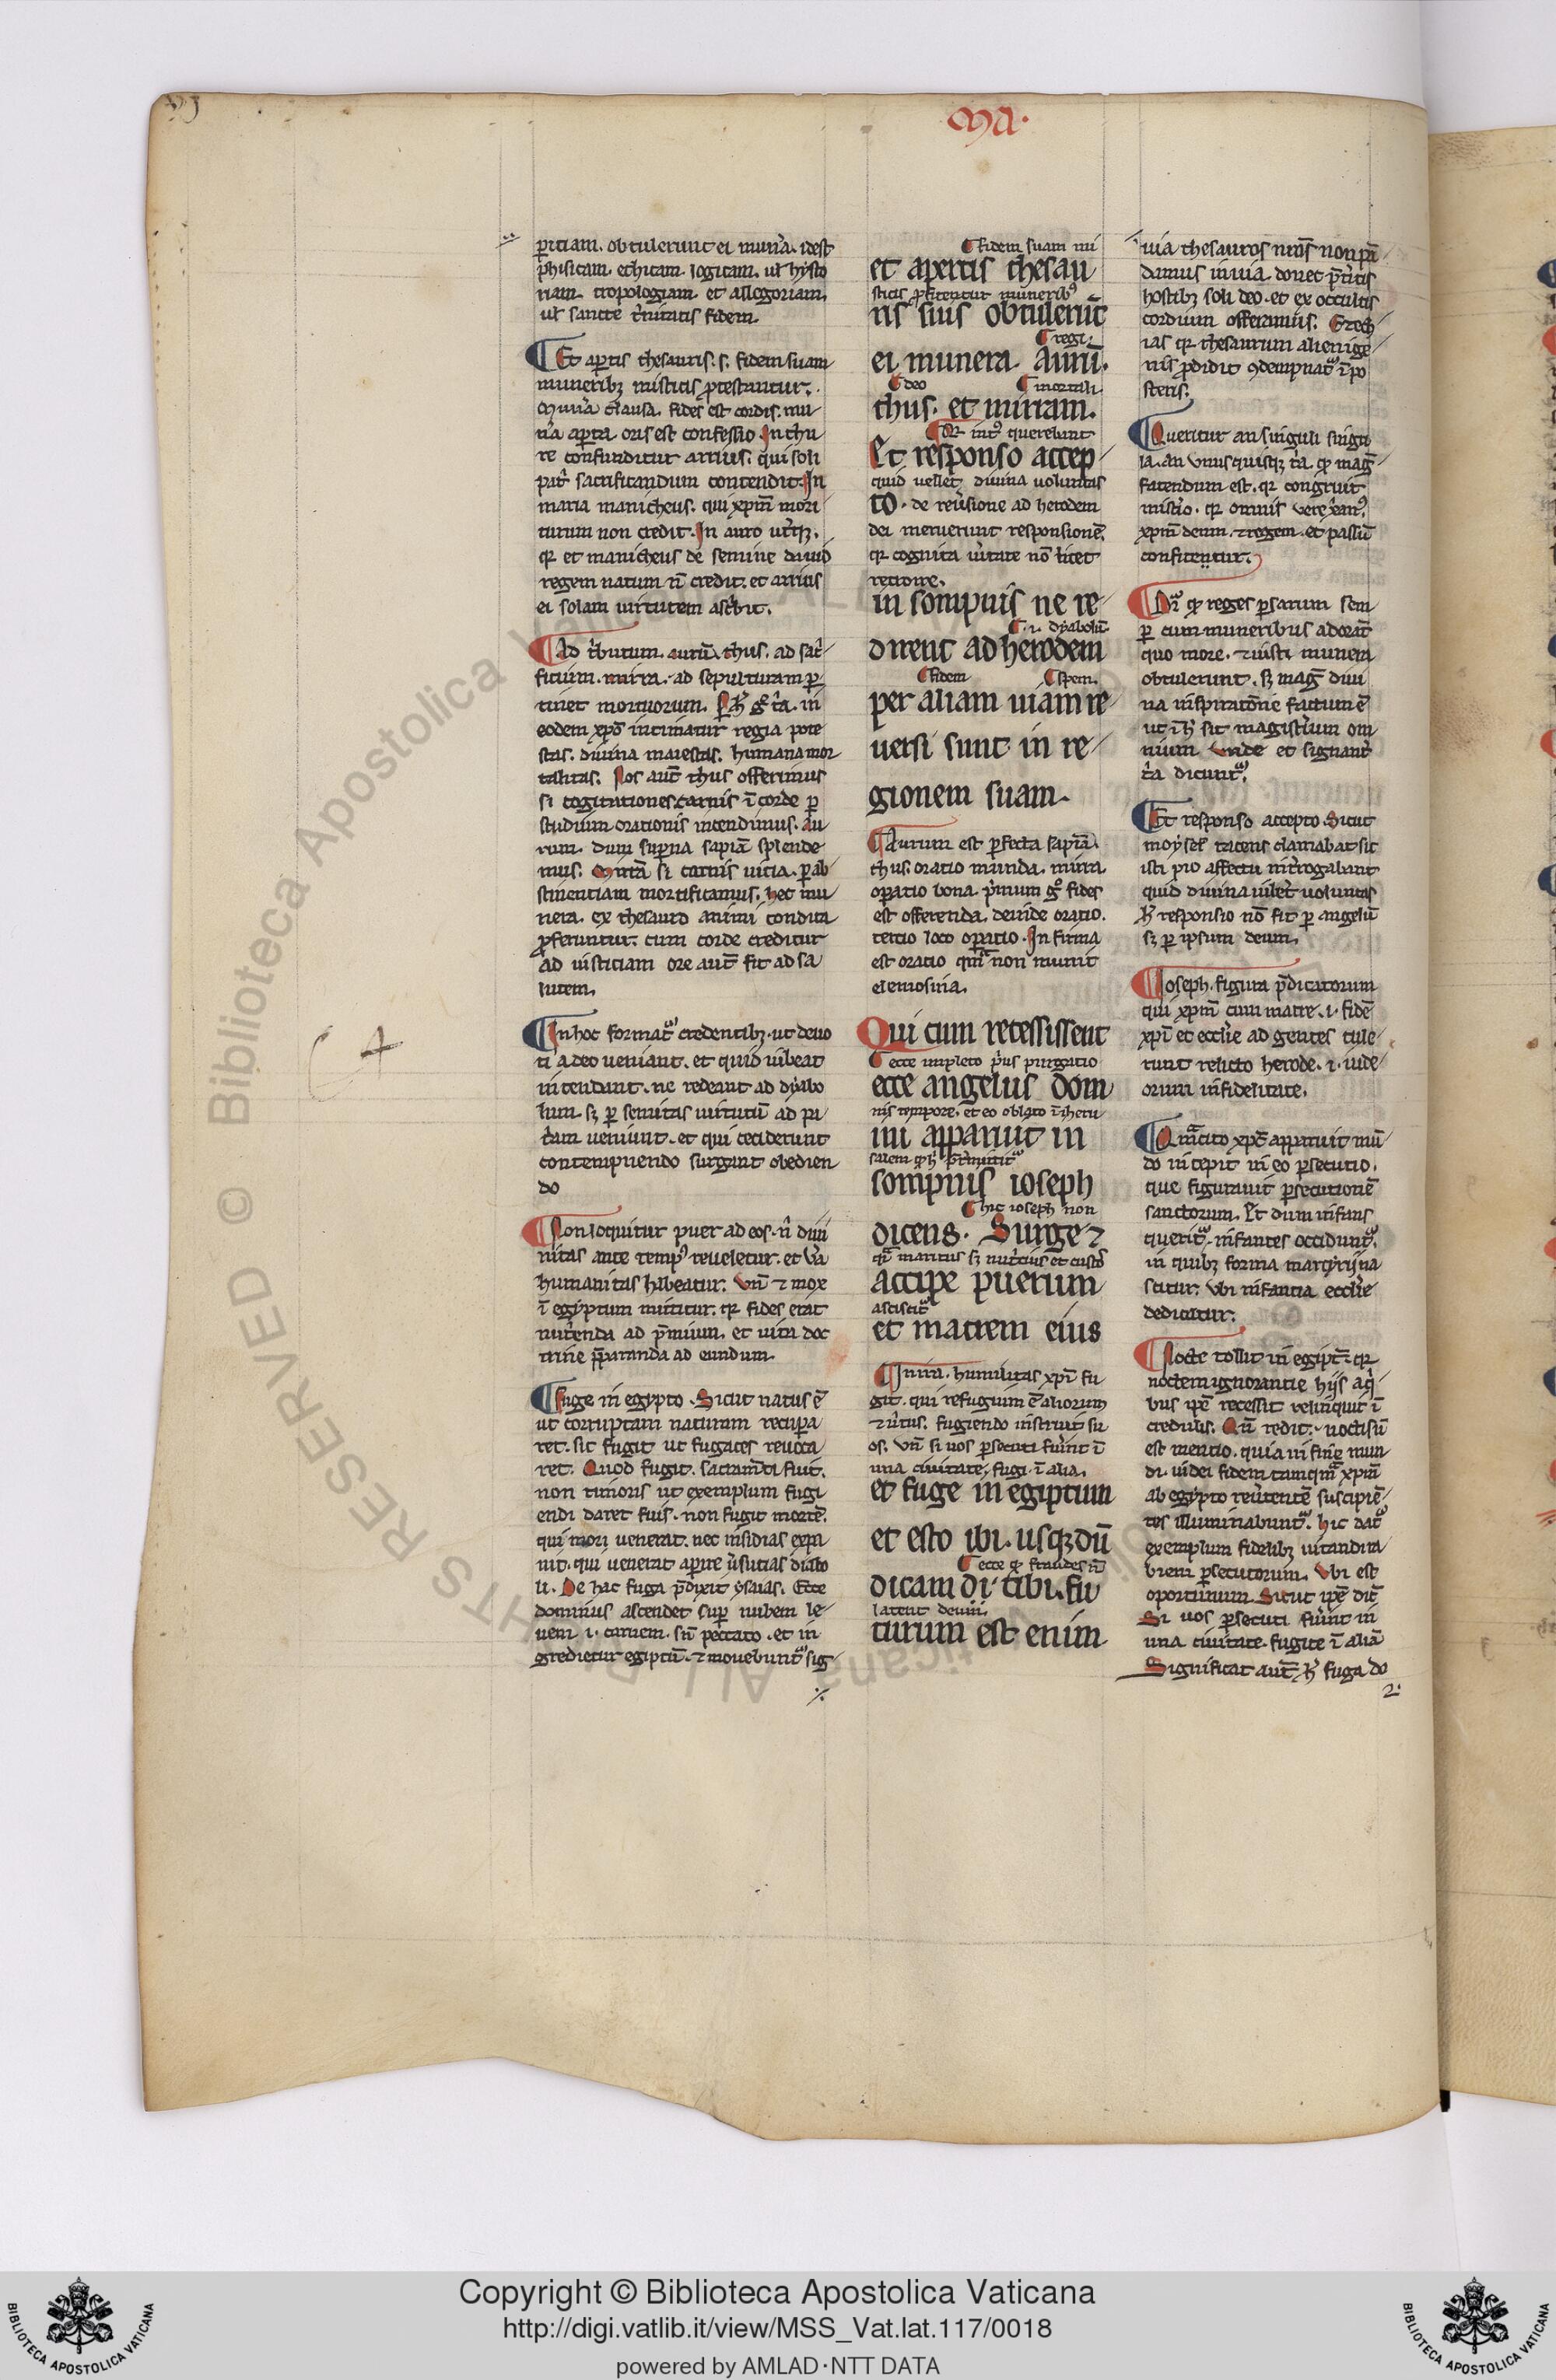 Ma.
ꝑitiam. obtulerunt ei mun̾a. idest
phisicam. ethicam. logicam. ul̾ hysto
riam. tropologiam. et allegoriam.
ul̾ sancte t̾nitatis fidem.
Et aꝑtis thesauris. s. fidem suam
muneribꝫ misticis ꝓtestantur.
Mun̾a clausa. fides est cordis. mu
n̾a aꝑta oris est confessio. In thu
re confunditur arrius. qui soli
pat̾ sacrificandum contendit. In
mirra manicheus. qui xp̄m mori
turum non credit. In auro ut̾qꝫ.
qr et manicheus de semine dauid
regem natum n̄ credit. et arrius
ei solam uirtutem asc̾bit.
Ad t̾butum. aurū. thus. ad sac̾
ficium. mirra. ad sepulturam ꝑ
tinet mortuorum. Ꝑ h̾ gͦ t̾a. in
eodem xpō intimatur regia pote
stas. diuina maiestas. humana mor
talitas. Nos aut̄ thus offerimus
si cogitationes carnis ī corde ꝑ
studium orationis incendimus. au
rum. dum suꝑna sapīa splende
mus. Mirrā si carnis uicia. ꝑ ab
stinentiam mortificamus. hec mu
nera. ex thesauro animi condita
ꝓferuntur. cum corde creditur
ad iusticiam ore aut̄ fit ad sa
lutem.
In hoc format᷑ credentibꝫ. ut deuo
ti a deo ueniant. et quid iubeat
intendant. ne redeant ad dyabo
lum. sꝫ ꝑ semitas uirtutū ad pa
t̾am ueniunt. et qui ceciderunt
contempnendo surgant obedien
do
Non loquitur puer ad eos. n̄ diui
nitas ante tempꝰ reueletur. et u̾a
humanitas habeatur. Vn̄ ⁊ mox
ī egyptum mittitur. qr fides erat
nut̾enda ad p̄mium. et uita doc
trine p̄paranda ad eundum.
Fuge in egypto. Sicut natus ē
ut corruptam naturam recuꝑa
ret. sic fugit ut fugaces reuoca
ret. Quod fugit. sacram̄ti fuit.
non timoris ut exemplum fugi
endi daret suis. non fugit mortē.
qui mori uenerat. nec insidias expa
uit. qui uenerat aꝑire u̾sutias diabo
li. De hac fuga p̄dixit ysaias. Ecce
dominus ascendet suꝑ nubem le
uem .i. carnem. sn̄ peccato. et in
gredietur egiptū. ⁊ mouebunt᷑ sig
fidem suam mi
et apertis thesau
sticis ꝓfitentur muneribꝰ
ris suis obtulerūt
regi.
ei munera. aurū.
deo mortali.
thus. et mirram.
qr intꝰ querebant
Et responso accep
quid uellet diuina uoluntas
to. de reu̾sione ad herodem
dei meruerunt responsionē.
qr cognita u̾itate nō licet
redire.
in sompnis ne re
.i. dyabolū
dirent ad herodem
fidem spem.
per aliam uiam re
uersi sunt in re
gionem suam.
Aurum est ꝑfecta sapīa.
thus. oratio munda. mirra
oꝑatio bona. p̾mum gͦ fides
est offerenda. deinde oratio.
tercio loco oꝑatio. In firma
est oratio qm̄ non munit
elemosina.
Qui cum recessissent
ecce impleto p̾us purgatio
ecce angelus dom
nis tempore. et eo oblato ī iheru
ini apparuit in
salem
sompnis ioseph
hic ioseph non
dicens. Surge ⁊
maritus sꝫ nut̾cius et custos
accipe puerum
asciscit᷑
et matrem eius
Mira. humilitas xp̄i fu
git. qui refugium ē aliorum
⁊ u̾tus. fugiendo instruit su
os. vn̄ si uos ꝑsecuti fu̾int ī
una ciuitate. fugi. ī alia.
et fuge in egiptum
et esto ibi. usqꝫ dū
ecce qd fraudes n̄
dicam tibi. fu
latent deum.
turum est enim
uia thesauros nr̄os non pā
damus in uia. donec p̄t̾itis
hostibꝫ soli deo. et ex occultis
cordium offeramus. Ezech
ias qr thesaurum alienige
nis ꝓdidit ꝯdempnat᷑ ī po
steris.
Queritur an singuli singu
la. an unusquisqꝫ t̾a. qd mag̾
fatendum est. qr congruit
mist̾io. qr omnis uere xan̾ꝰ
xp̄m deum. ⁊ regem. et passū
confitentur.
Dr̄ qd reges ꝑsarum sem
ꝑ cum muneribus adorāt
quo more. ⁊ iusti munera
obtulerunt. sꝫ mag̾ diui
na inspiratōne factum ē
ut ī h̾ sit magist̾ium om
nium. Vnde et signant̾
t̾a dicunt᷑.
Et responso accepto. Sicut
moyses tacens clamabat sic
isti pio affectu int̾rogabant
quid diuina iubet uoluntas
h̾ responsio nō fit ꝑ angelū
sꝫ ꝑ ipsum deum.
Ioseph. figura p̄dicatorum
qui xp̄m cum matre. i. fidē
xp̄i et ecc̄lie ad gentes tule
runt relicto herode. i. iude
orum infidelitate.
Qm̄ cito xpc̄ apparuit mū
do incepit in eo ꝑsecutio.
que figurauit ꝑsecutionē
sanctorum. Et dum infans
querit᷑. infantes occidunt᷑.
in quibꝫ forma martyrij na
scitur. Vbi infantia ecclīe
dedicatur.
Nocte tollit in egiptū. qr
noctem ignorantie hijs a q̾
bus ip̄e recessit relinquit ī
credulis. Qn̄ redit. noctis n̄
est mentio. quia in fine mun
di. iudei fidem tamqm̄ xp̄m
ab egypto reu̾tentē suscipiē
tes illuminabunt᷑. hic dat᷑
exemplum fidelibꝫ uitandi ra
biem ꝑsecutorum. Vbi est
oportunum. Sicut ip̄e dic̄
Si uos ꝑsecuti fu̾int in
una ciuitate. fugite ī aliā
Significat aut̄ h̾ fuga do
Copyright © Biblioteca Apostolica Vaticana
http://digi.vatlib.it/view/MSS_Vat.lat.117/0018
powered by AMLAD·NTT DATA
BIBLIOTECA APOSTOLICA VATICANA
BIBLIOTECA APOSTOLICA VATICANA